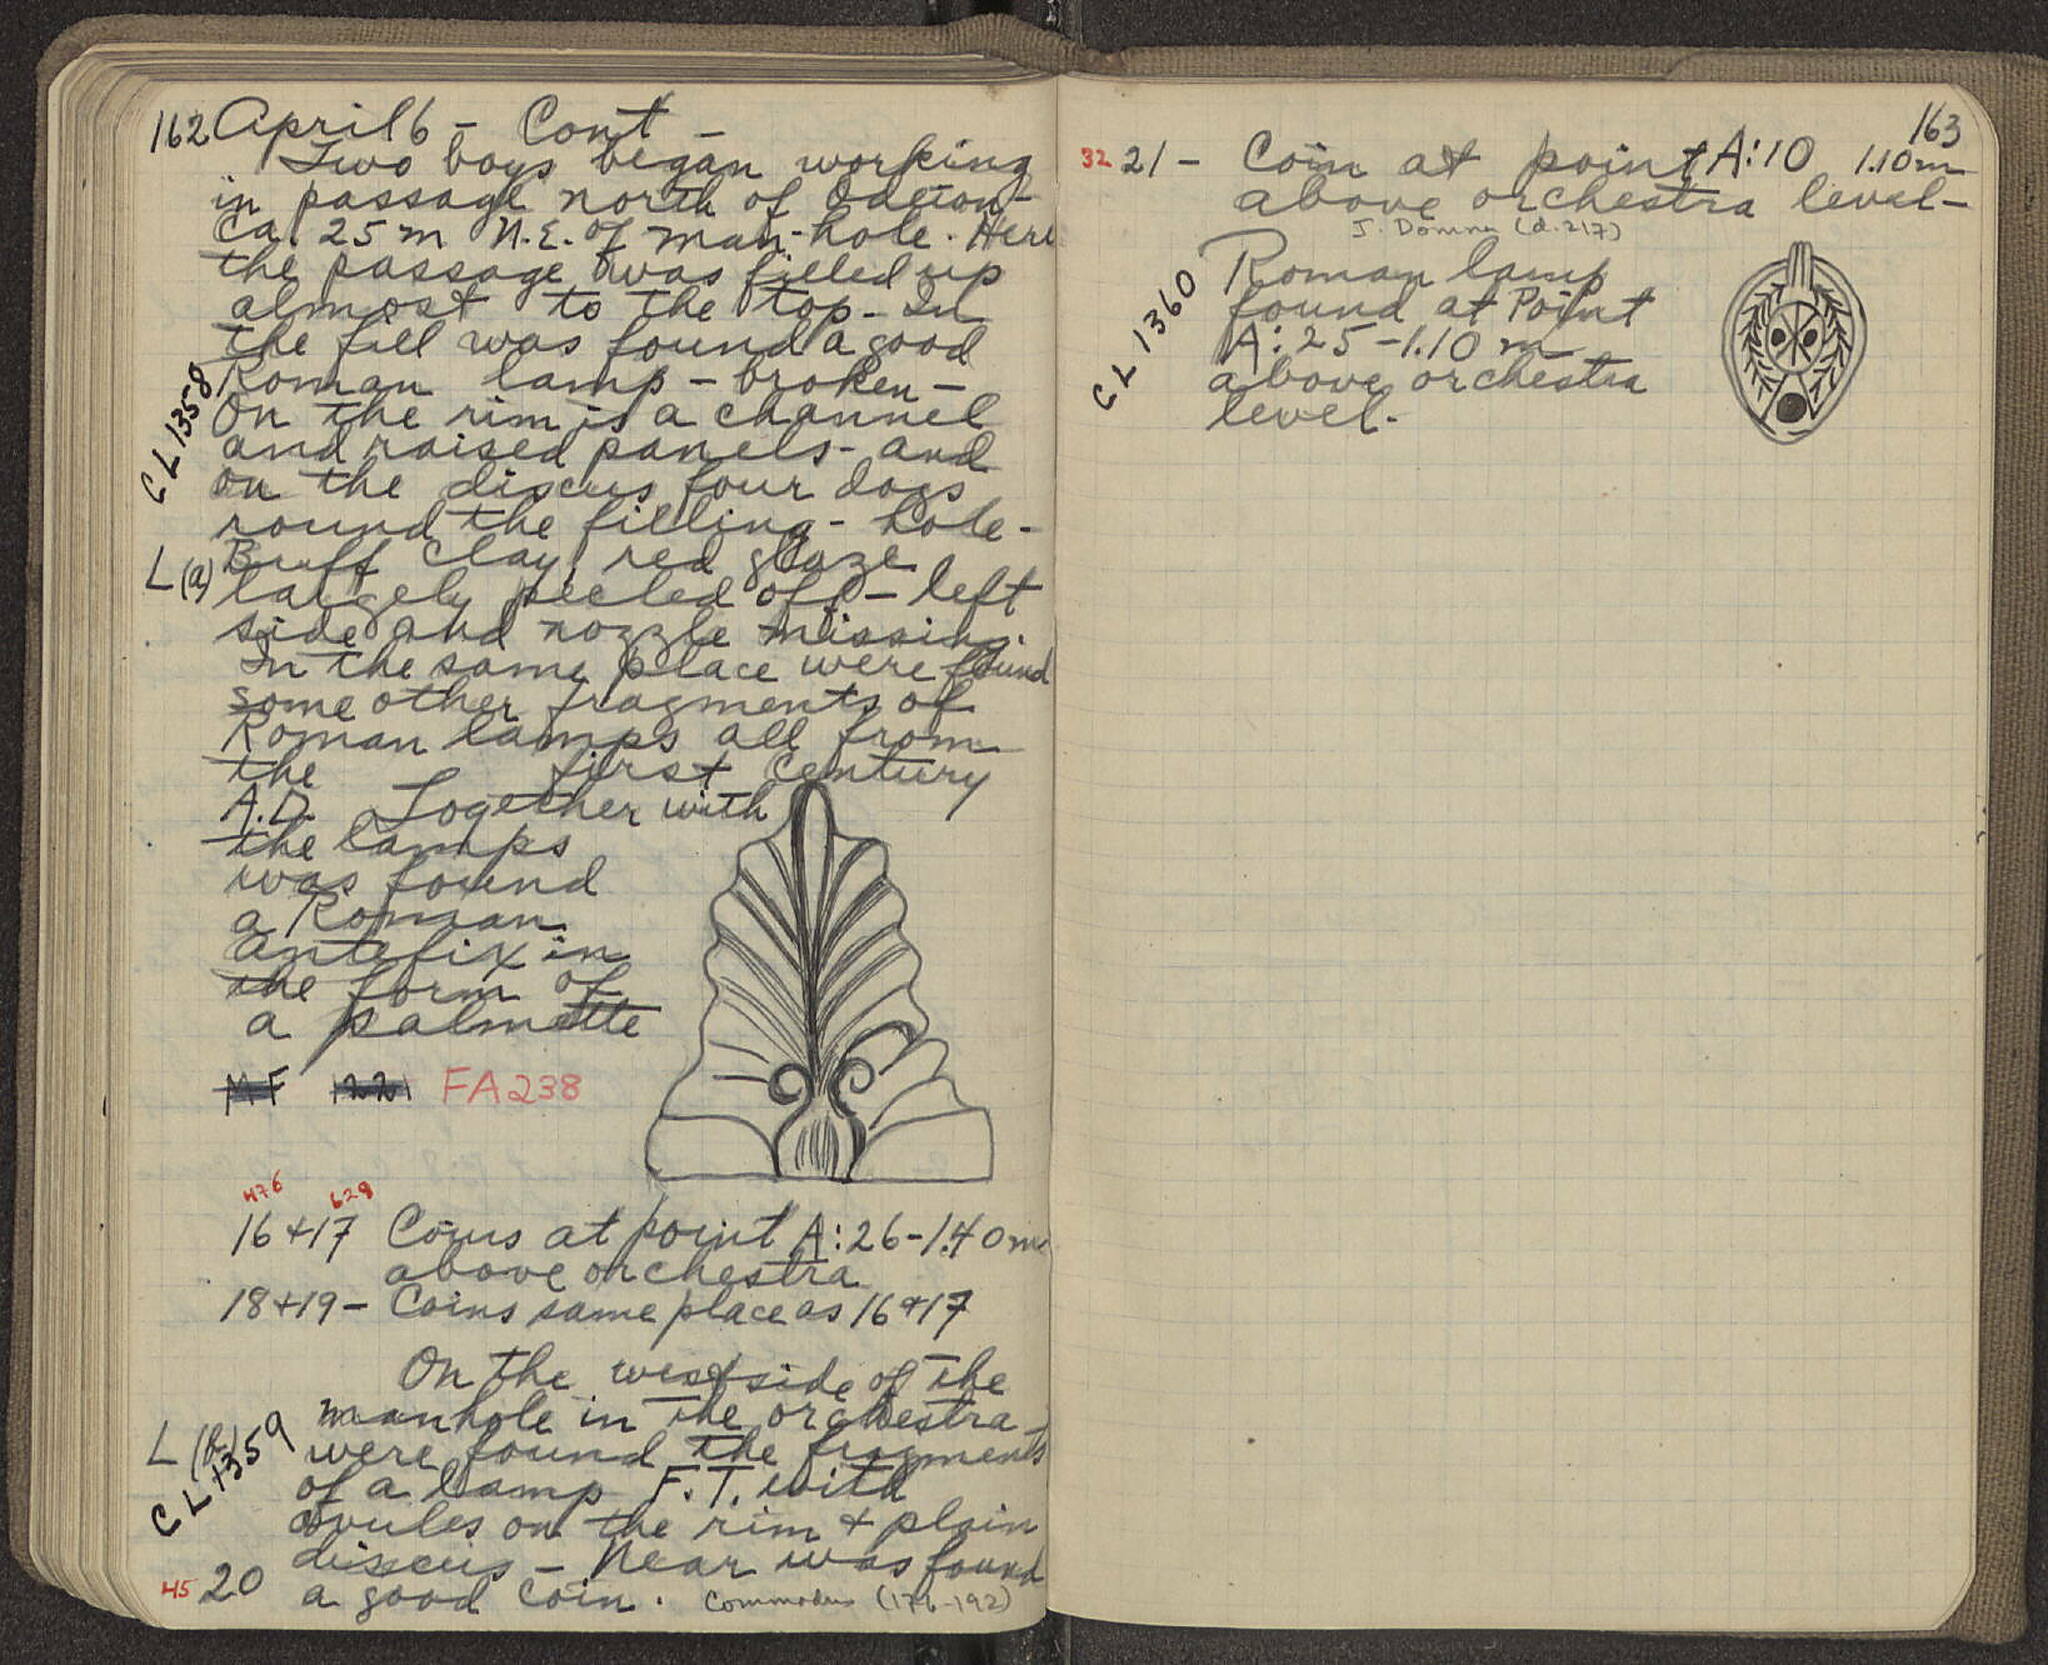 162 April 6 - Cont -
Two boys began working
in passage north of Odeion -
Ca. 25 m N.E. of man-hole. Here
the passage was filled up
almost to the top - In
the fill was found a good
Roman lamp - broken -
CL 1358
On the rim is a channel
and raised panels - and
on the discus four dogs
round the filling-hole -
L (a) Buff clay, red glaze
largely peeled off - left
side and nozzle missing.
In the same place were found
some other fragments of
Roman lamps all from
the first century
A.D. Together with
the lamps
was found
a Roman
antefix in
the form of
a palmette
MF 1221 FA 238
476 629
16 + 17 Coins at point A:26 - 1.40 m
above orchestra
18 + 19 - Coins same place as 16 + 17
On the westside of the
manhole in the orchestra -
L (b) were found the fragments
CL 1359
of a lamp F.T. with
ovules on the rim + plain
discus - Near was found
45 20 a good coin. Commodus (176-192)
163
32 21 - Coin at point A:10 1.10 m
above orchestra level -
J. Domna (d. 217)
CL 1360
Roman lamp
found at Point
A: 25 - 1.10 m
above orchestra
level -